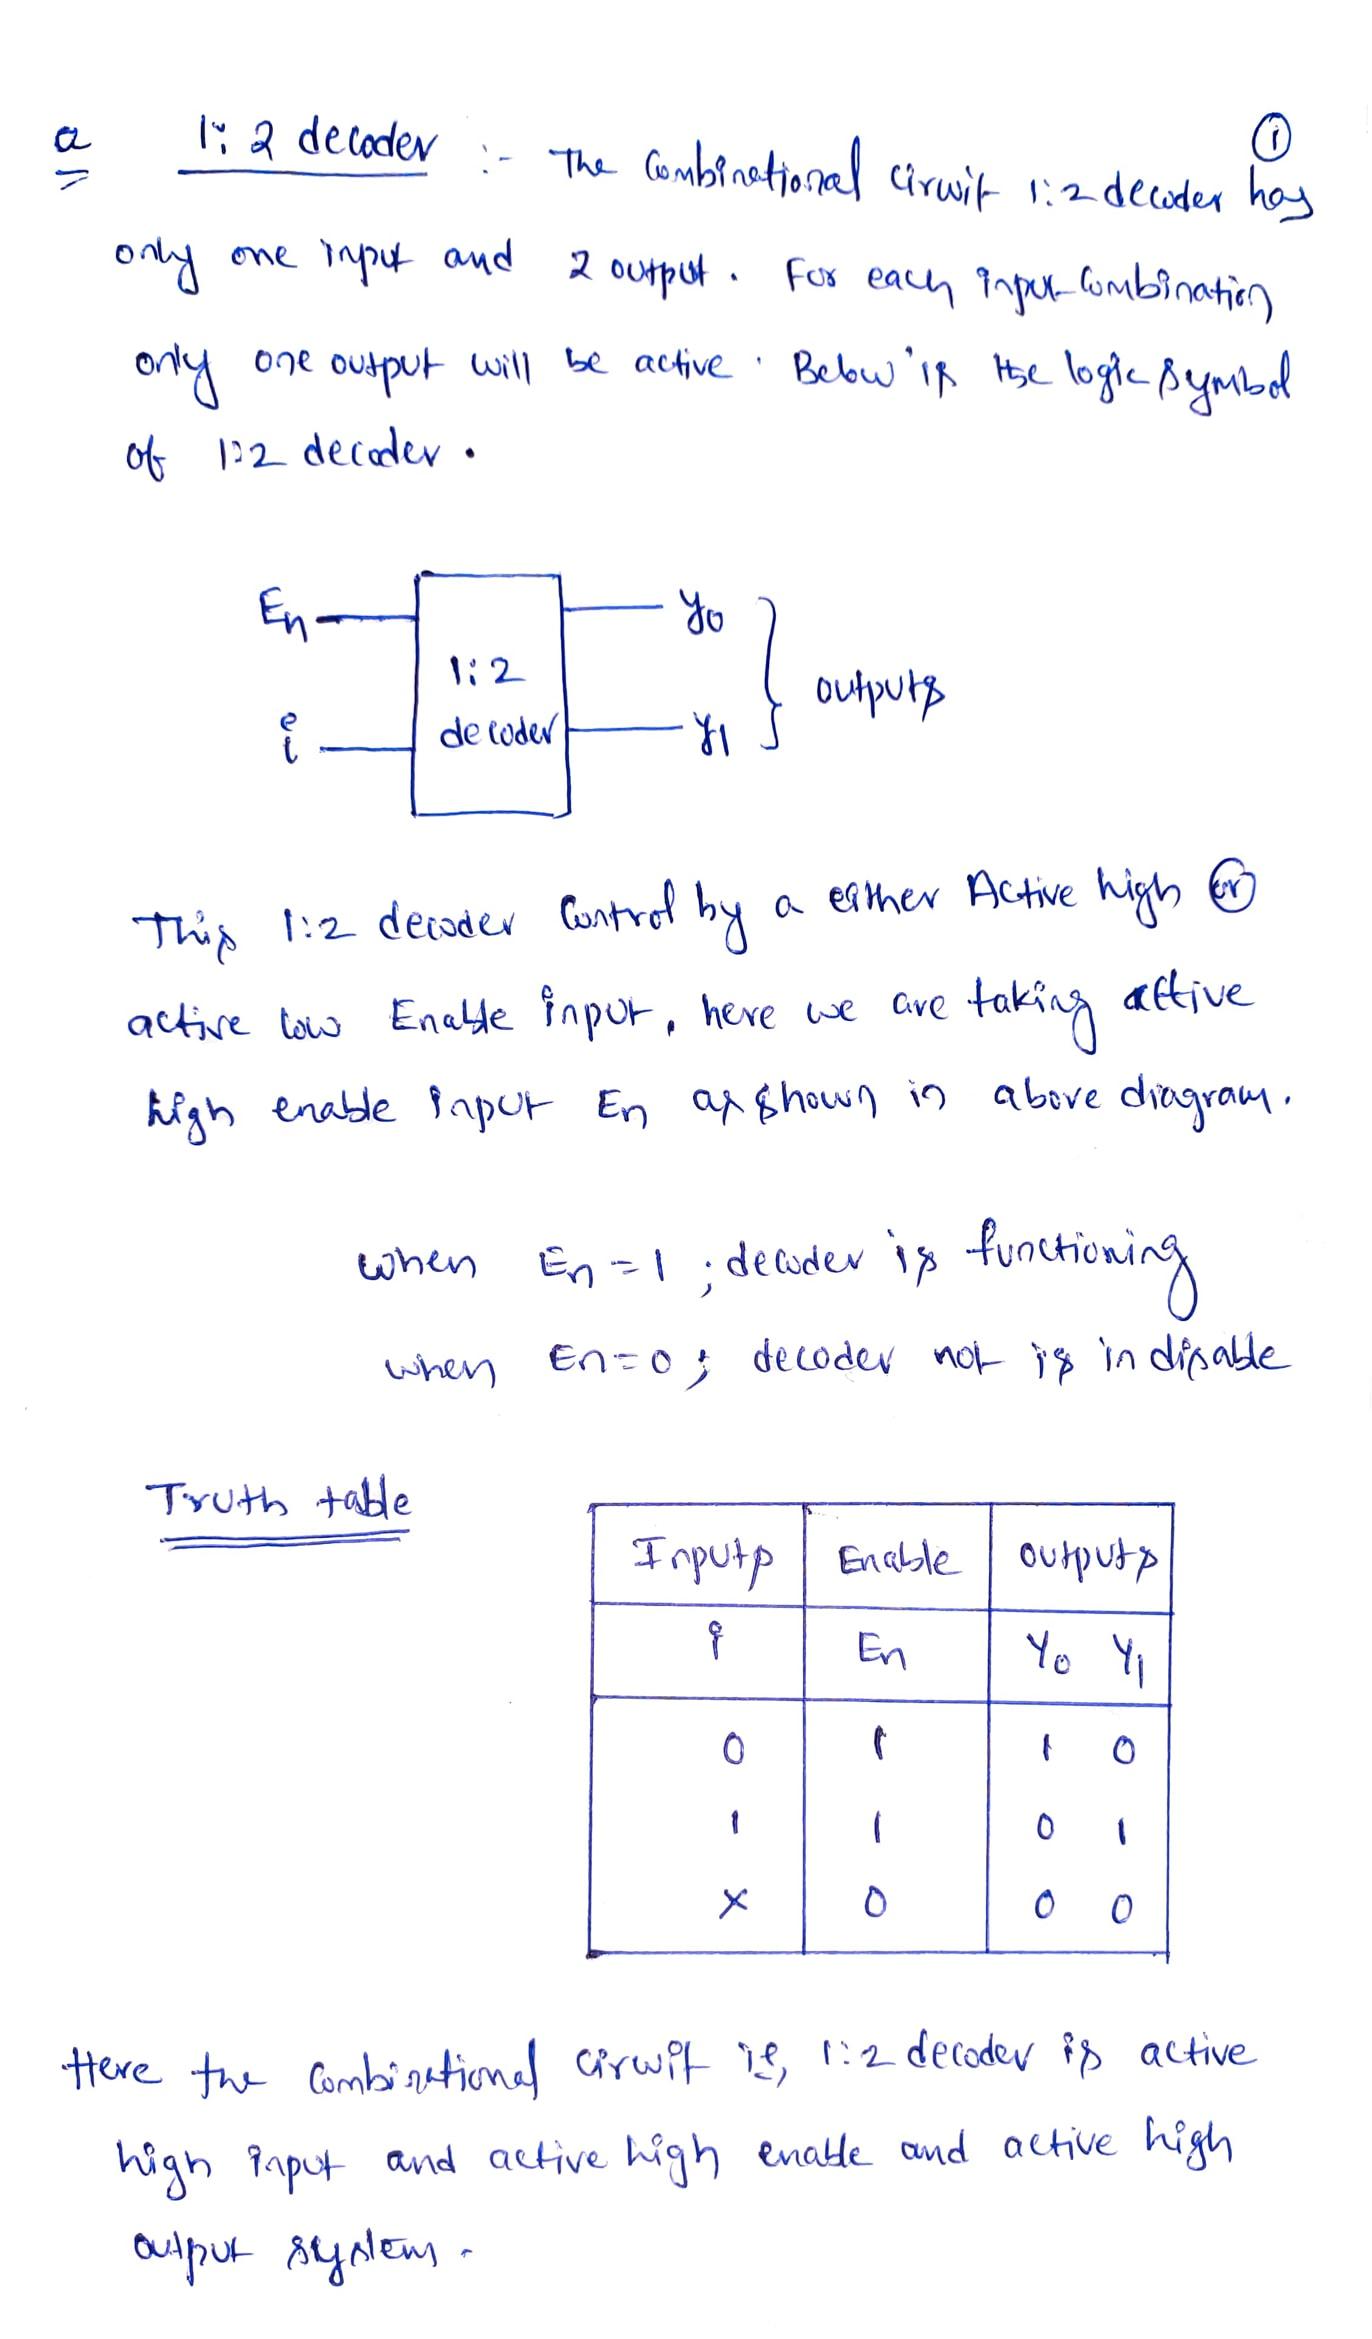 ①
a 1:2 decoder :- The Combinational circuit 1:2 decoder has
only one input and 2 output. For each input combination
only one output will be active. Below is the logic symbol
of 1:2 decoder.
En
Y0
1:2
decoder
i
Y1
outputs
This 1:2 decoder Control by a either Active high or
active low Enable input, here we are taking active
high enable input En as shown in above diagram.
when En = 1 ; decoder is functioning
when En = 0 ; decoder not is in disable
Truth table
Inputs Enable outputs
i En Y0 Y1
0 1 1 0
1 1 0 1
X 0 0 0
Here the Combinational circuit ie, 1:2 decoder is active
high input and active high enable and active high
output system.